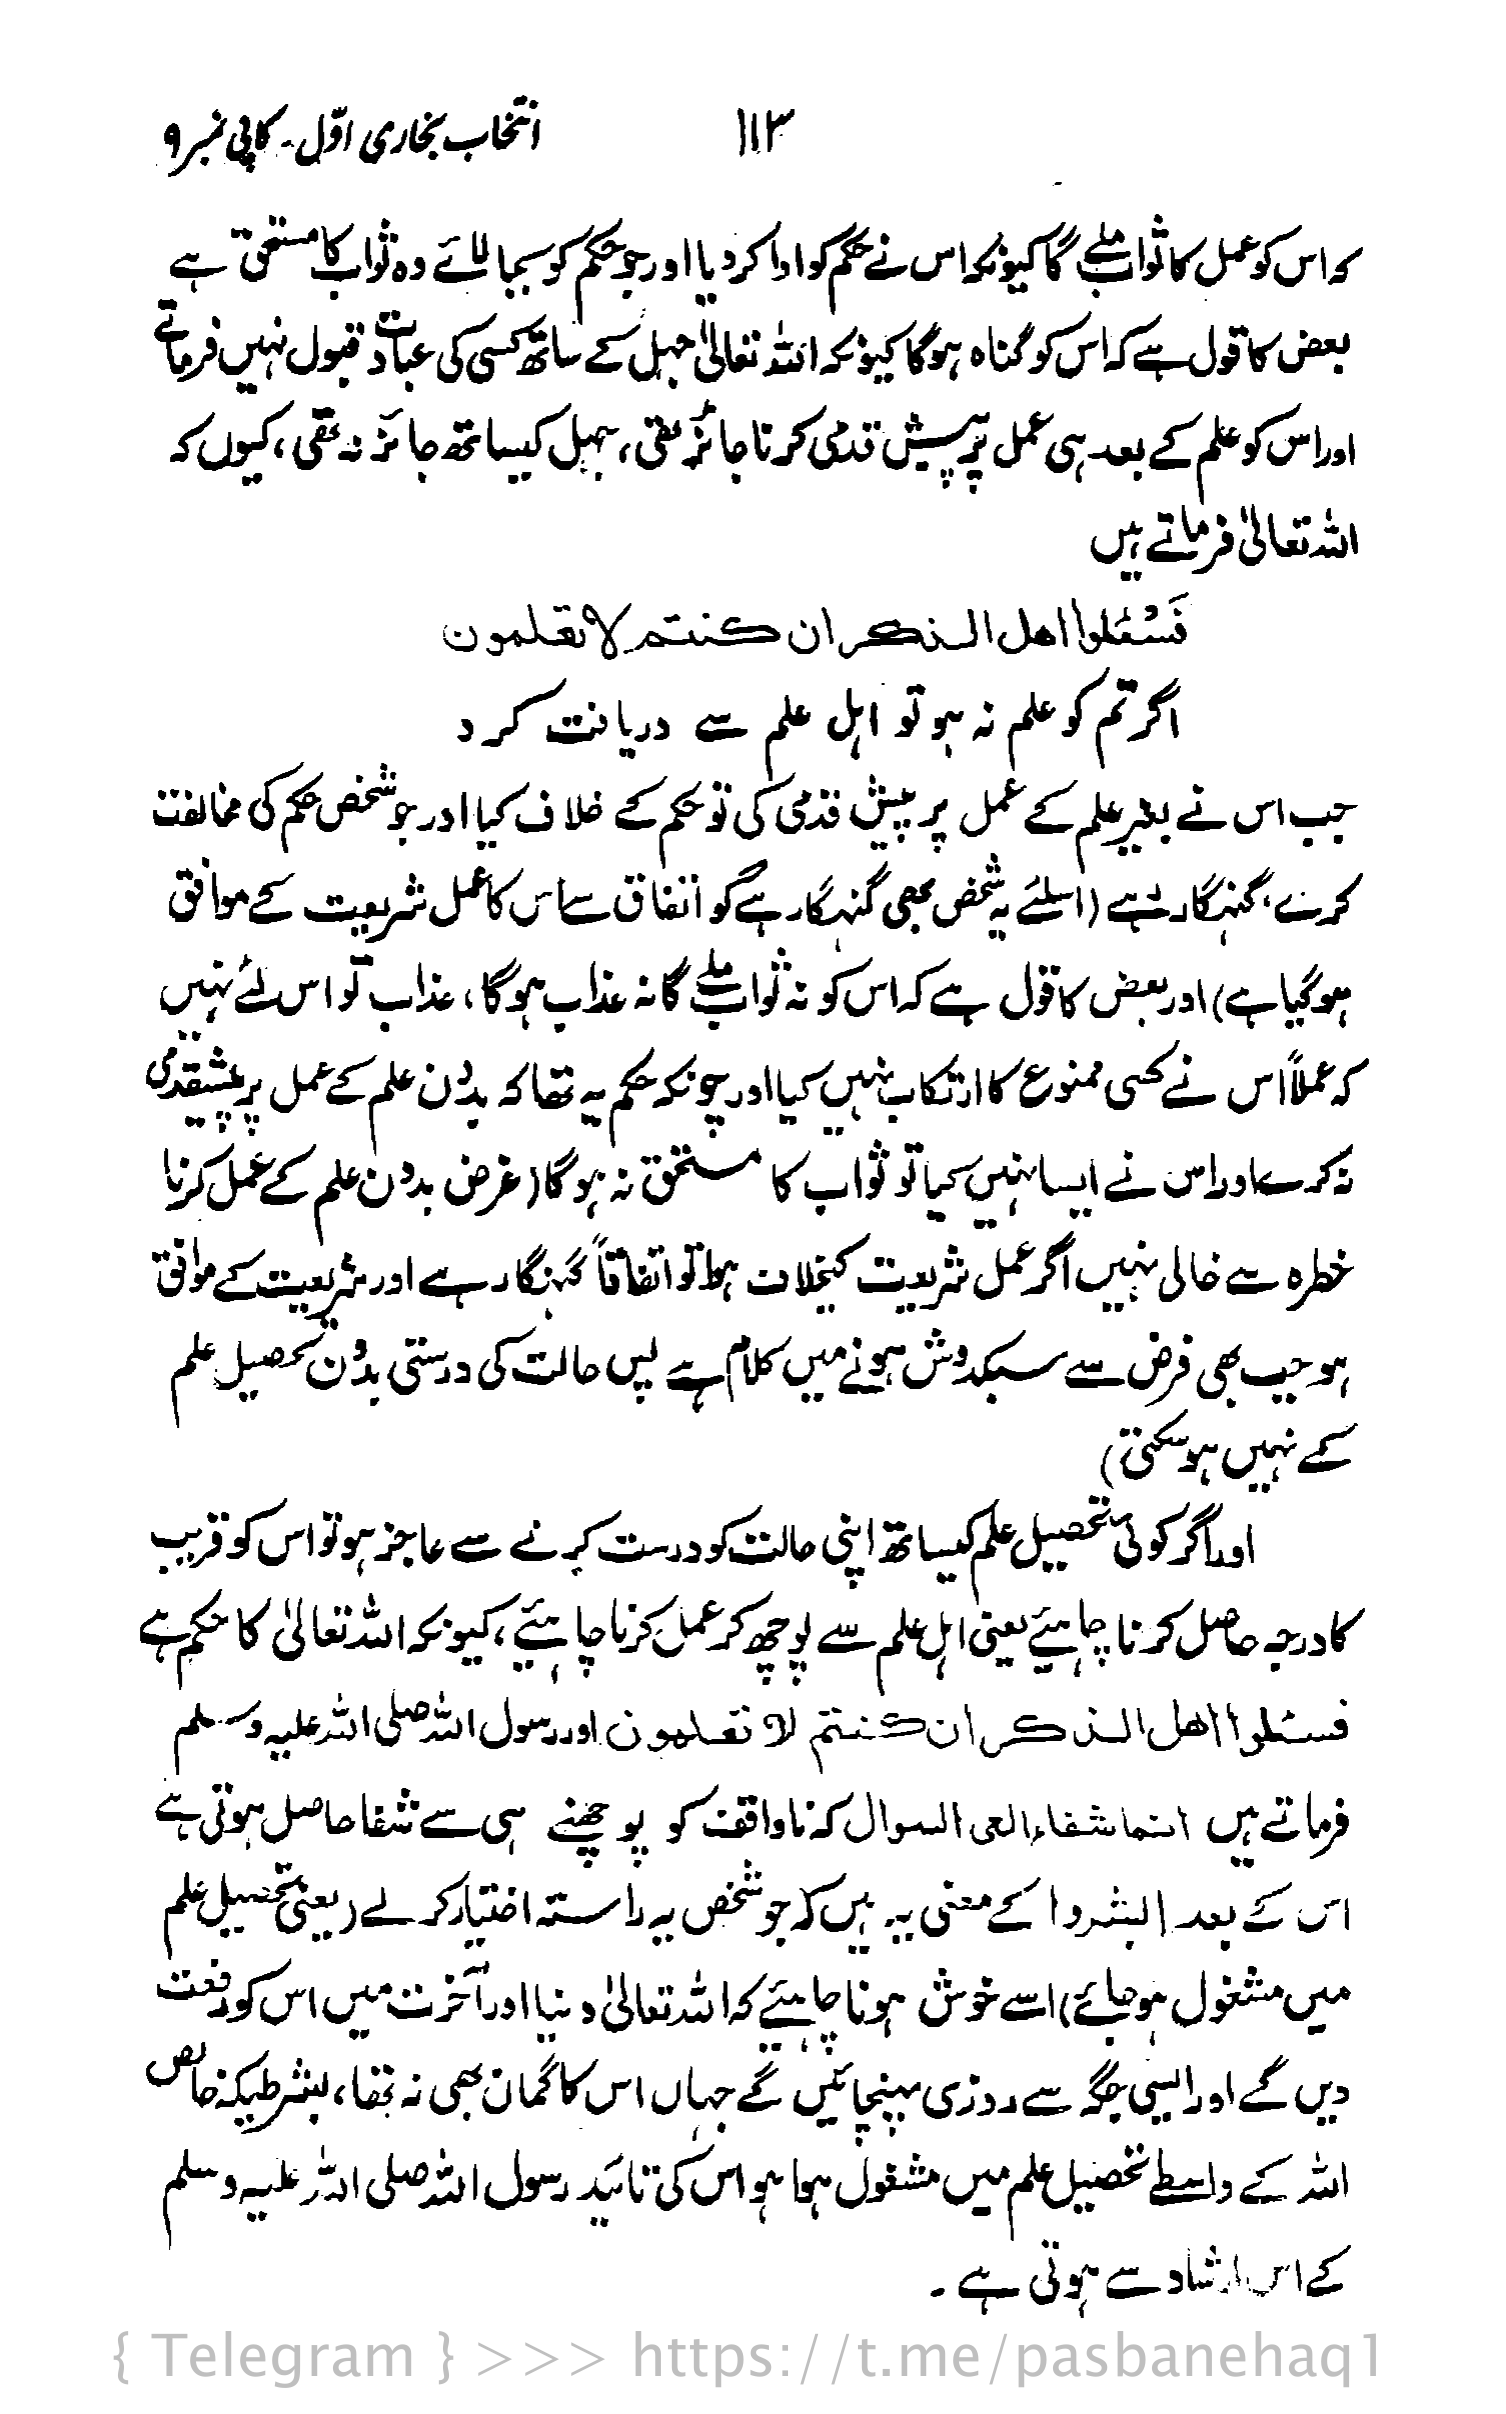 انتخاب بخاری اوّل۔ کاپی نمبر ۹
۱۱۳
کہ اس کو عمل کا ثواب ملے گا کیونکہ اس نے حکم کو ادا کر دیا اور جو حکم کو بجا لائے وہ ثواب کا مستحق ہے
بعض کا قول ہے کہ اس کو گناہ ہوگا کیونکہ اللہ تعالیٰ جہل کے ساتھ کسی کی عبادت قبول نہیں فرماتے
اور اس کو علم کے بعد ہی عمل پر پیش قدمی کرنا جائز تھی، جہل کیساتھ جائز نہ تھی، کیوں کہ
اللہ تعالیٰ فرماتے ہیں
فَسْئلوا اھل الذکر ان کنتم لا تعلمون
اگر تم کو علم نہ ہو تو اہل علم سے دریافت کرو
جب اس نے بغیر علم کے عمل پر پیش قدمی کی تو حکم کے خلاف کیا اور جو شخص حکم کی مخالفت
کرے، گنہگار ہے (اسلئے یہ شخص بھی گنہگار ہے گو اتفاق سے اس کا عمل شریعت کے موافق
ہوگیا ہے) اور بعض کا قول ہے کہ اس کو نہ ثواب ملے گا نہ عذاب ہوگا، عذاب تو اس لئے نہیں
کہ عملاً اس نے کسی ممنوع کا ارتکاب نہیں کیا اور چونکہ حکم یہ تھا کہ بدون علم کے عمل پر پیشقدمی
نہ کرے اور اس نے ایسا نہیں کیا تو ثواب کا مستحق نہ ہوگا (غرض بدون علم کے عمل کرنا
خطرہ سے خالی نہیں اگر عمل شریعت کیخلاف ہوا تو اتفاقاً گنہگار ہے اور شریعت کے موافق
ہو جب بھی فرض سے سبکدوش ہونے میں کلام ہے پس حالت کی درستی بدون تحصیل علم
کے نہیں ہو سکتی)
اور اگر کوئی تحصیل علم کیساتھ اپنی حالت کو درست کرنے سے عاجز ہو تو اس کو قریب
کا درجہ حاصل کرنا چاہیئے یعنی اہل علم سے پوچھ کر عمل کرنا چاہیئے، کیونکہ اللہ تعالیٰ کا حکم ہے
فسئلوا اھل الذکر ان کنتم لا تعلمون اور رسول اللہ صلی اللہ علیہ وسلم
فرماتے ہیں انما شفاء العی السوال کہ ناواقف کو پوچھنے ہی سے شفا حاصل ہوتی ہے
اس کے بعد ابشروا کے معنی یہ ہیں کہ جو شخص یہ راستہ اختیار کر لے (یعنی تحصیل علم
میں مشغول ہو جائے) اسے خوش ہونا چاہیئے کہ اللہ تعالیٰ دنیا اور آخرت میں اس کو رفعت
دیں گے اور ایسی جگہ سے روزی پہنچائیں گے جہاں اس کا گمان بھی نہ تھا، بشرطیکہ خالص
اللہ کے واسطے تحصیل علم میں مشغول ہوا ہو اس کی تائید رسول اللہ صلی اللہ علیہ وسلم
کے اس ارشاد سے ہوتی ہے۔
{ Telegram } >>> https://t.me/pasbanehaq1